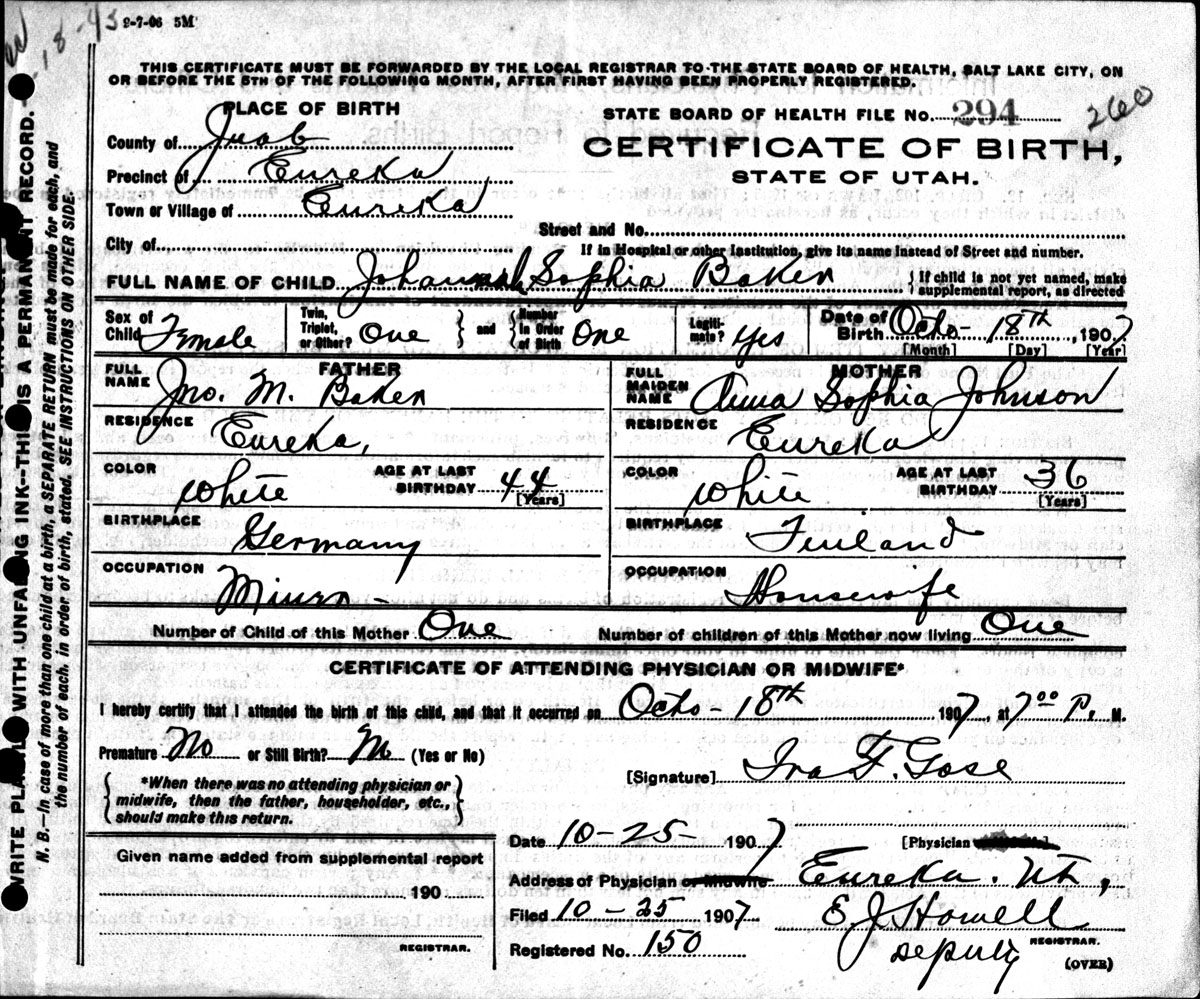 18-43 9-7-06 5M
THIS CERTIFICATE MUST BE FORWARDED BY THE LOCAL REGISTRAR TO THE STATE BOARD OF HEALTH, SALT LAKE CITY, ON
OR BEFORE THE 5TH OF THE FOLLOWING MONTH, AFTER FIRST HAVING BEEN PROPERLY REGISTERED.
PLACE OF BIRTH
STATE BOARD OF HEALTH FILE NO. 294 260
County of Juab
CERTIFICATE OF BIRTH,
Precinct of Eureka
STATE OF UTAH.
Town or Village of Eureka
Street and No.
City of
If in Hospital or other Institution, give its name instead of Street and number.
FULL NAME OF CHILD Johannah Sophia Baker { If child is not yet named, make supplemental report, as directed
Sex of Child Female
Twin, Triplet, or Other? One } and { Number in Order of Birth One
Legitimate? Yes
Date of Birth Octo- 18th, 1907
[Month] [Day] [Year]
FATHER
FULL NAME Jno. M. Baker
MOTHER
FULL MAIDEN NAME Anna Sophia Johnson
RESIDENCE Eureka,
RESIDENCE Eureka
COLOR White AGE AT LAST BIRTHDAY 44 [Years]
COLOR White AGE AT LAST BIRTHDAY 36 [Years]
BIRTHPLACE Germany
BIRTHPLACE Finland
OCCUPATION Miner -
OCCUPATION Housewife
Number of Child of this Mother One Number of children of this Mother now living One
CERTIFICATE OF ATTENDING PHYSICIAN OR MIDWIFE*
I hereby certify that I attended the birth of this child, and that it occurred on Octo- 18th 1907, at 7:00 P. M.
Premature No or Still Birth? No (Yes or No)
[Signature] Ira F. Gose
{ *When there was no attending physician or midwife, then the father, householder, etc., should make this return. }
Date 10-25- 1907 [Physician
Given name added from supplemental report
190
REGISTRAR.
Address of Physician or Midwife Eureka. Ut,
Filed 10-25 1907 E J Howell
Registered No. 150 Deputy REGISTRAR.
(OVER)
WRITE PLAINLY WITH UNFADING INK--THIS IS A PERMANENT RECORD.
N. B.--In case of more than one child at a birth, a SEPARATE RETURN must be made for each, and
the number of each, in order of birth, stated. SEE INSTRUCTIONS ON OTHER SIDE.